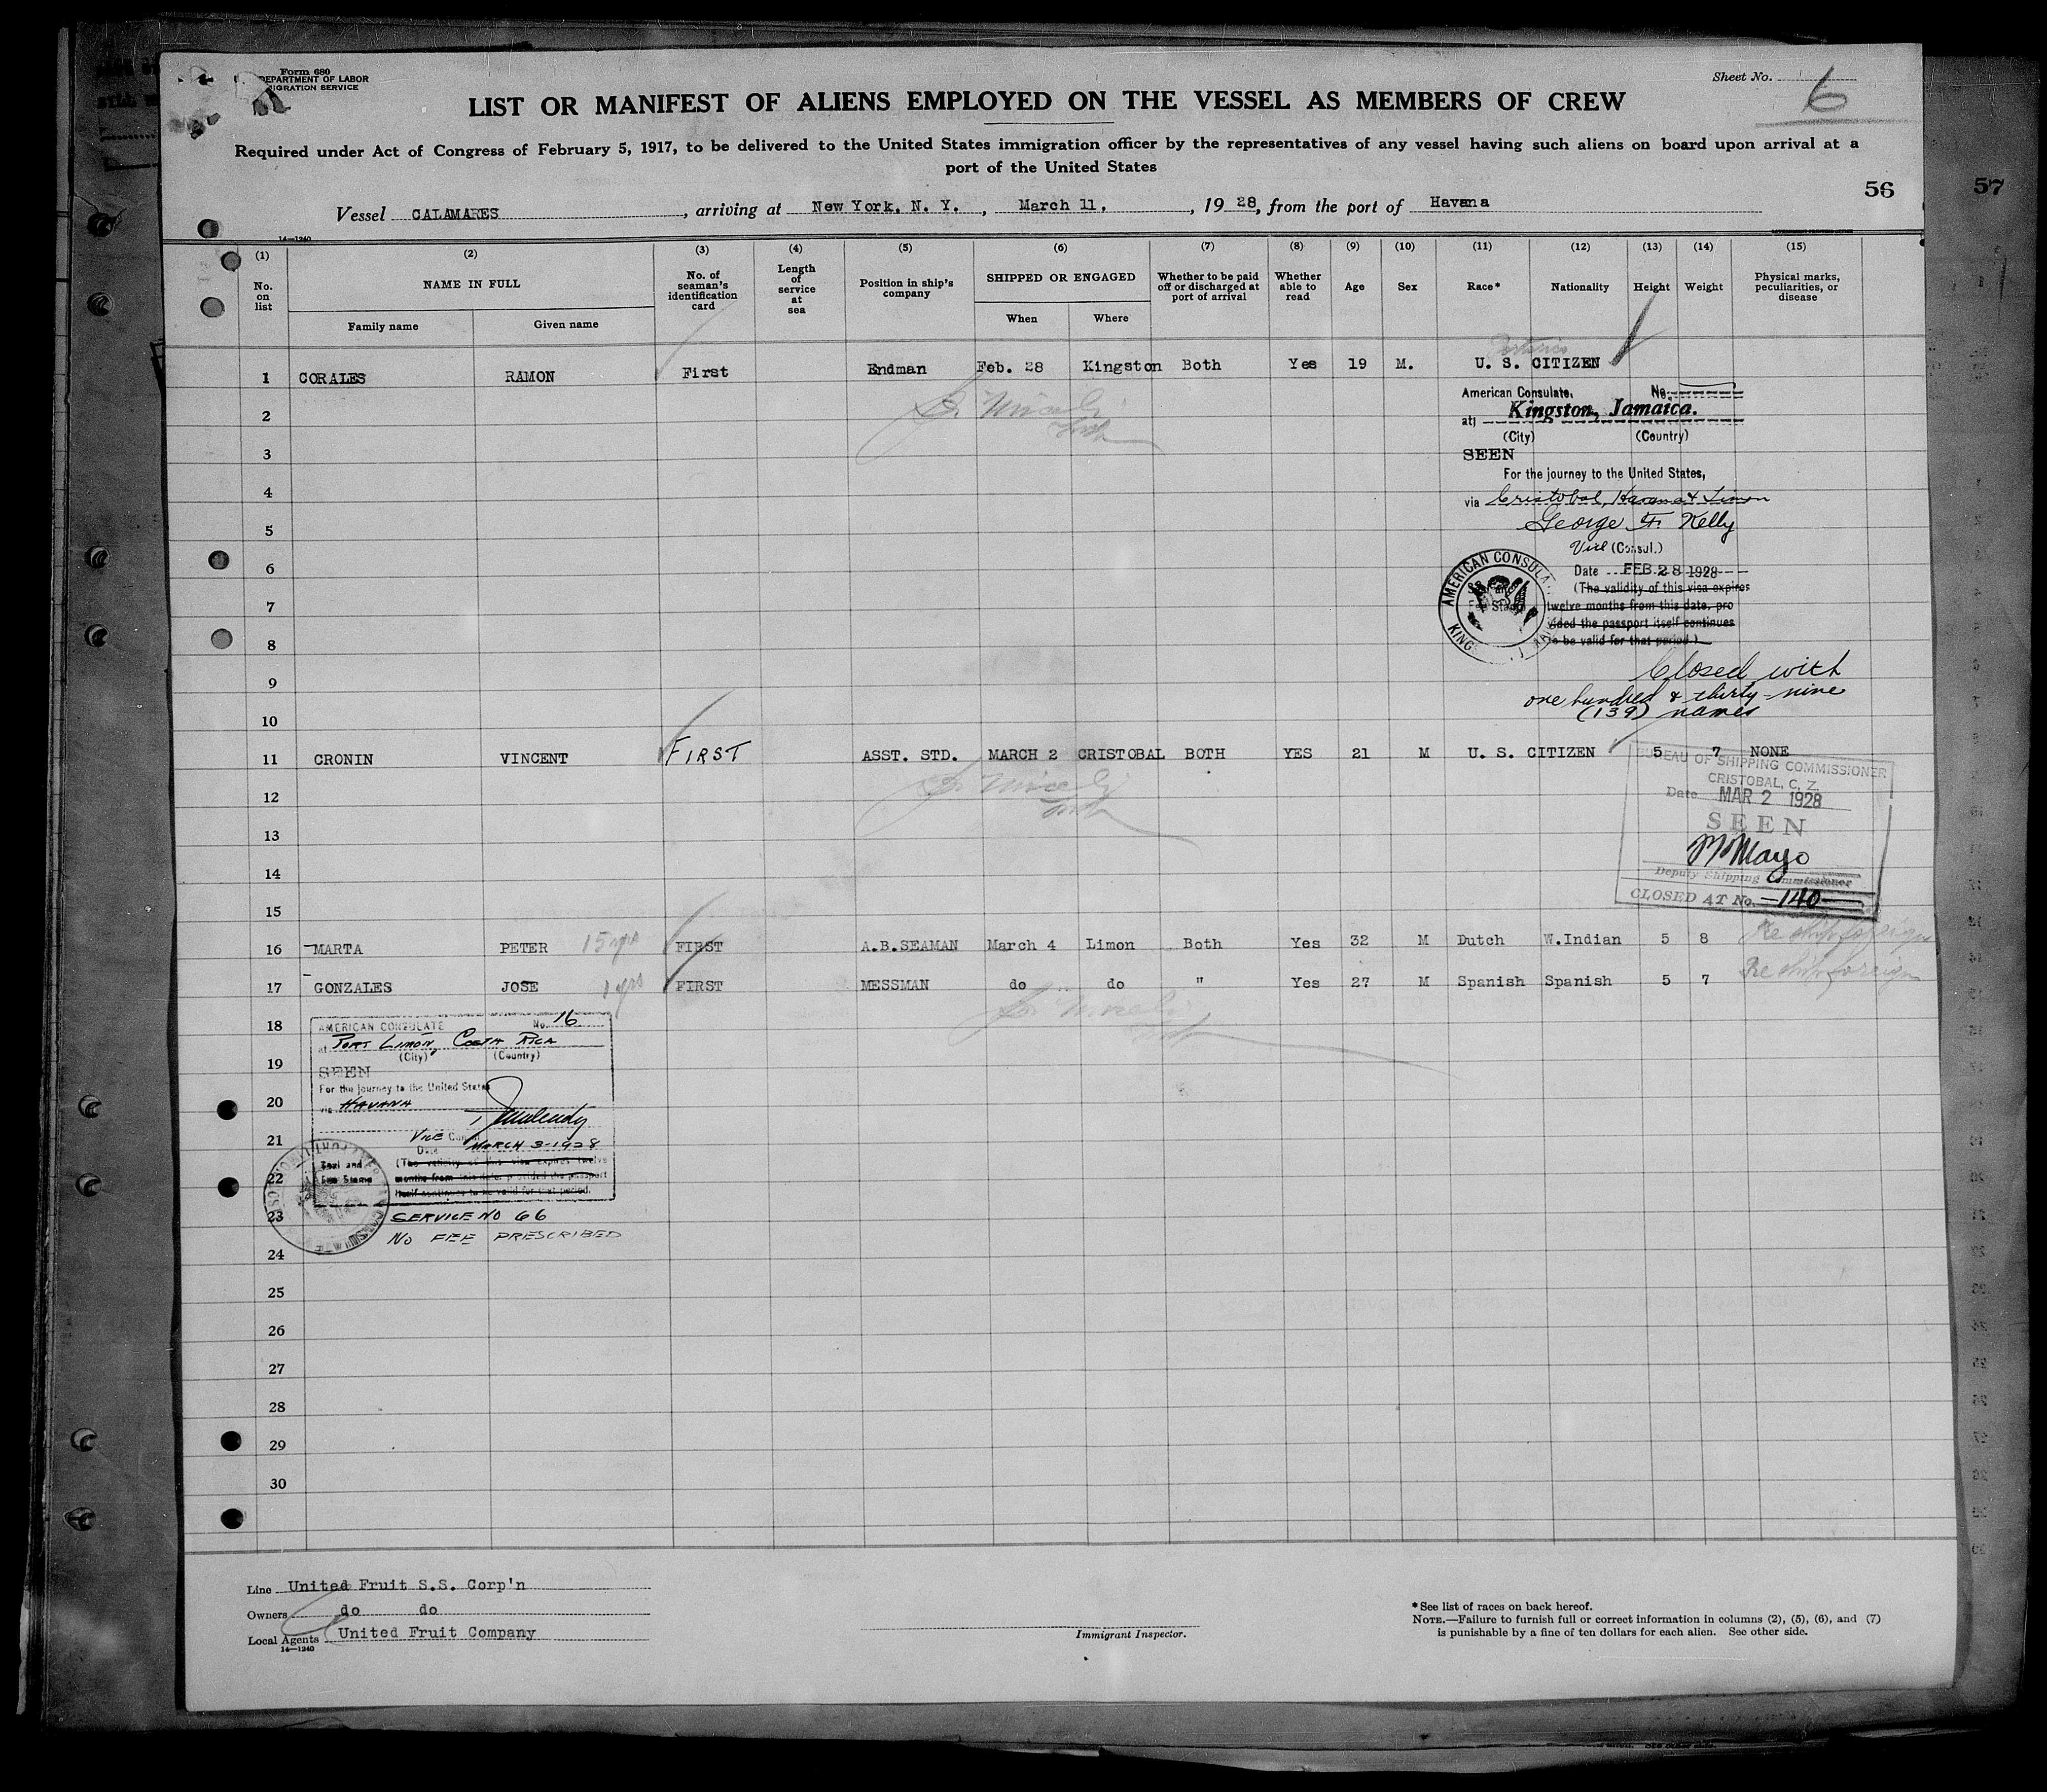 Form 680
DEPARTMENT OF LABOR
IGRATION SERVICE
Sheet No. 6
LIST OR MANIFEST OF ALIENS EMPLOYED ON THE VESSEL AS MEMBERS OF CREW
Required under Act of Congress of February 5, 1917, to be delivered to the United States immigration officer by the representatives of any vessel having such aliens on board upon arrival at a
port of the United States
56
57
Vessel CALAMARES, arriving at New York, N. Y., March 11, 1928, from the port of Havana
14—1240
(1) (2) (3) (4) (5) (6) (7) (8) (9) (10) (11) (12) (13) (14) (15)
No. on list
NAME IN FULL
Family name
Given name
No. of seaman's identification card
Length of service at sea
Position in ship's company
SHIPPED OR ENGAGED
When
Where
Whether to be paid off or discharged at port of arrival
Whether able to read
Age
Sex
Race*
Nationality
Height
Weight
Physical marks, peculiarities, or disease
1 CORALES RAMON First Endman Feb. 28 Kingston Both Yes 19 M. U. S. CITIZEN
American Consulate, No.
2
at Kingston, Jamaica.
(City) (Country)
3
SEEN
For the journey to the United States,
4
via Cristobal, Havana & Limon
5
George F. Kelly
Vice (Consul.)
6
Date FEB 28 1928
(The validity of this visa expires
7
twelve months from this date, pro
vided the passport itself continues
8
to be valid for that period.)
AMERICAN CONSULA
KING
9
Closed with
one hundred & thirty-nine
10
(139) names
11 CRONIN VINCENT FIRST ASST. STD. MARCH 2 CRISTOBAL BOTH YES 21 M U. S. CITIZEN 5 7 NONE
BUREAU OF SHIPPING COMMISSIONER
CRISTOBAL, C. Z.
12
Date MAR 2 1928
SEEN
13
Mayo
14
Deputy Shipping Commissioner
CLOSED AT No. 140
15
16 MARTA PETER 15 yrs FIRST A.B.SEAMAN March 4 Limon Both Yes 32 M Dutch W.Indian 5 8 Re ship foreign
17 GONZALES JOSE yrs FIRST MESSMAN do do " Yes 27 M Spanish Spanish 5 7 Re ship foreign
18
AMERICAN CONSULATE No. 16
at PORT LIMON, COSTA RICA
(City) (Country)
19
SEEN
For the journey to the United States
20
via HAVANA
VICE Consul
21
Date MARCH 3-1928
(The validity of this visa expires twelve
22
months from this date, provided the passport
itself continues to be valid for that period.
Seal and
Fee Stamp
23
SERVICE NO 66
NO FEE PRESCRIBED
24
25
26
27
28
29
30
Line United Fruit S.S. Corp'n
Owners do do
Local Agents United Fruit Company
14—1240
Immigrant Inspector.
*See list of races on back hereof.
NOTE.—Failure to furnish full or correct information in columns (2), (5), (6), and (7)
is punishable by a fine of ten dollars for each alien. See other side.